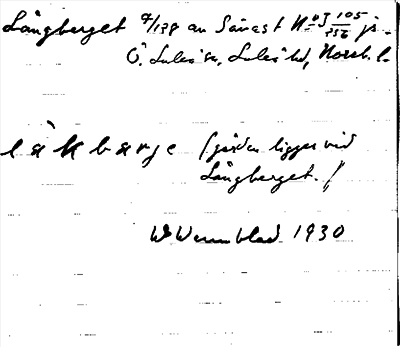 Långberget 4/138 av Sånäst N:o 3 105/256 js.
Ö. Luleå sn, Luleå hd, Norrb. l.
låkbærje (gården ligger vid
Långberget.)
W Wennblad 1930